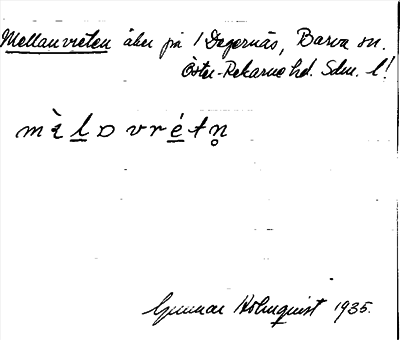 Mellanvreten åker på 1 Dagernäs, Barva sn.
Öster-Rekarne hd. Sdm. l!
mìlɔvrétn̥
Gunnar Holmquist 1935.